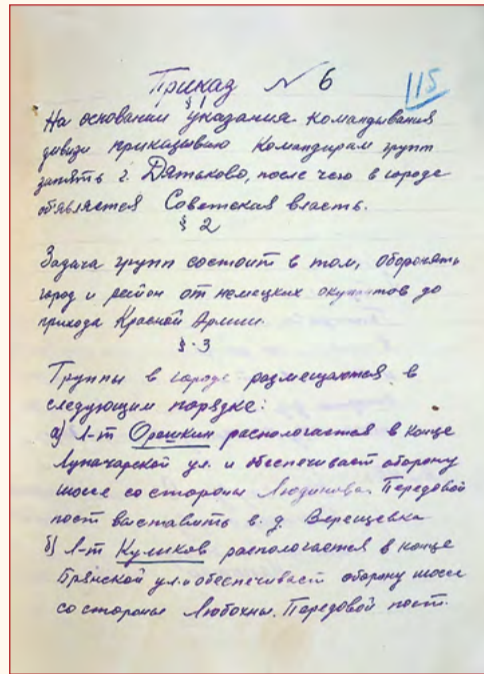 Приказ № 6
115
§ 1
На основании указания командывания
дивизи приказываю командирам групп
занять г. Дятьково, после чего в городе
объявляется Советская власть.
§ 2
Задача групп состоит в том, оборонять
город и район от немецких окупантов до
прихода Красной Армии.
§ 3
Группы в городе размещаются в
следующим порядке:
а) Л-т Орешкин распологается в конце
Луначарской ул. и обеспечивает оборону
шоссе со стороны Людинова. Передовой
пост выставить в д. Верещевка
б) Л-т Куликов распологается в конце
Брянской ул. и обеспечивает оборону шоссе
со стороны Любохны. Передовой пост.